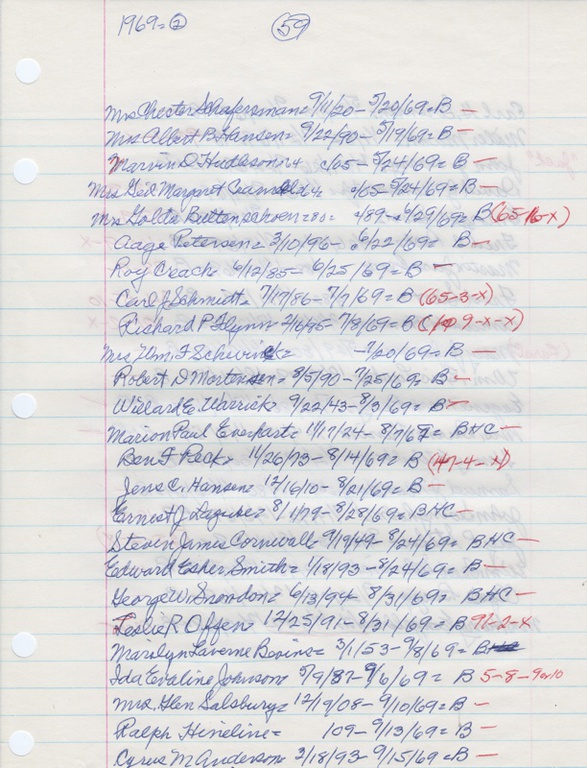 1969=② 59
Mrs Chester Schafersman= 9/11/20- 5/20/69=B —
Mrs Albert B. Hansen= 9/22/90- 5/19/69=B —
Marvin D. c/65- 5/24/69= B —
Mrs Margaret c/65- 5/24/69=B —
Mrs Golda =80= 4/89- 6/29/69= B (65-16-x)
Aage Petersen= 3/10/96- 6/22/69= B —
Roy Creach= 6/12/85- 6/25/69=B —
Carl J. Schmidt= 7/17/86- 7/7/69=B (65-3-x)
Richard P Flynn= 2/16/95- 7/8/69=B 9-x-x)
Mrs Wm. F. -7/20/69=B —
Robert D Mortensen= 8/5/90- 7/25/69= B —
Willard E. Warrick= 9/22/43- 8/3/69= B —
Marion Paul Everhart= 11/17/24- 8/7/69= BHC —
Ben F Peck= 11/26/73- 8/14/69= B (147-4-x)
Jens C. Hansen= 12/16/10- 8/21/69=B —
Ernest J. 8/1/79- 8/28/69= BHC —
Steven James Cornwall= 9/19/49- 8/24/69= BHC —
Edward Esher Smith= 1/18/93- 8/24/69= B —
George W. Snowdon= 6/13/94- 8/31/69= BHC —
Leslie R Offen= 12/25/91- 8/31/69= B 91-2-x
Marolyn Laverne Bevins= 3/1/53- 9/8/69= B
Ida Evaline Johnson= 5/9/87- 9/6/69= B 5-8-9 or 10
Mrs. Glen Salsbury= 12/19/08- 9/10/69=B —
Ralph Hineline= 109- 9/13/69= B —
Cyrus M. Anderson= 3/18/93- 9/15/69=B —